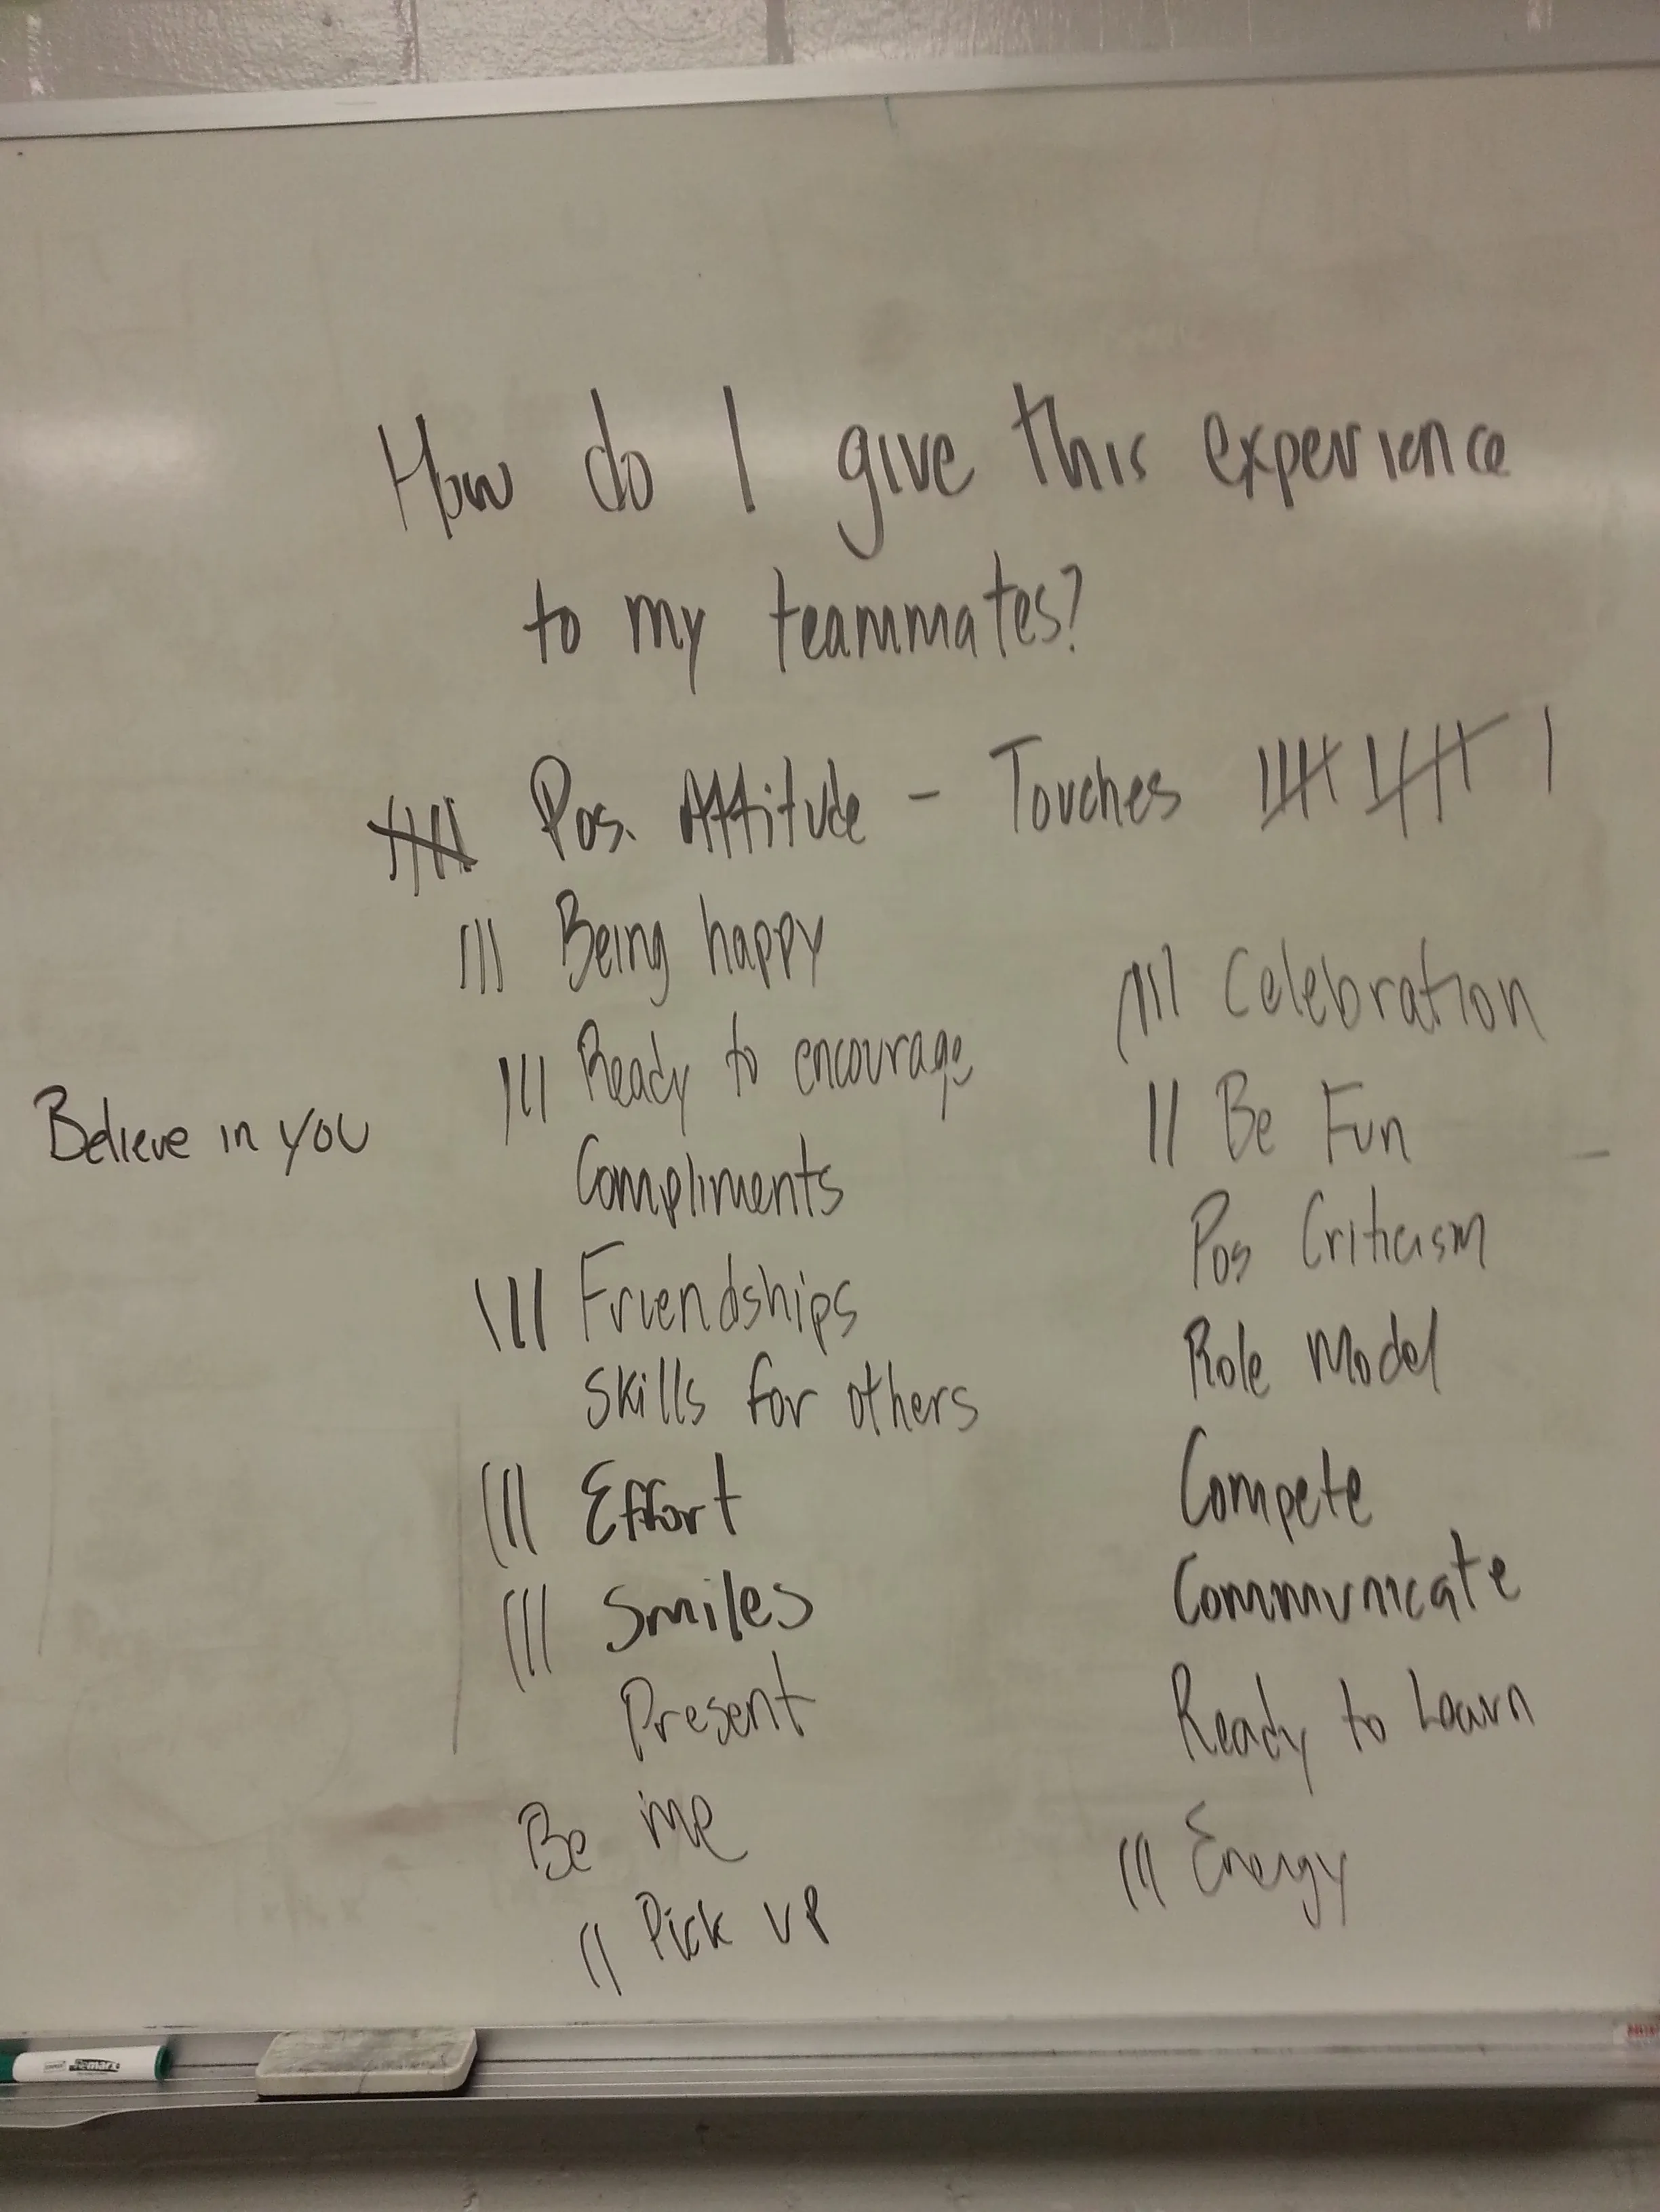 How do I give this experience
to my teammates?
Pos. Attitude - Touches
Being happy
Ready to encourage
Believe in you
Compliments
Friendships
Skills for others
Effort
Smiles
Present
Be me
Pick up
Celebration
Be Fun
Pos Criticism
Role Model
Compete
Communicate
Ready to Learn
Energy